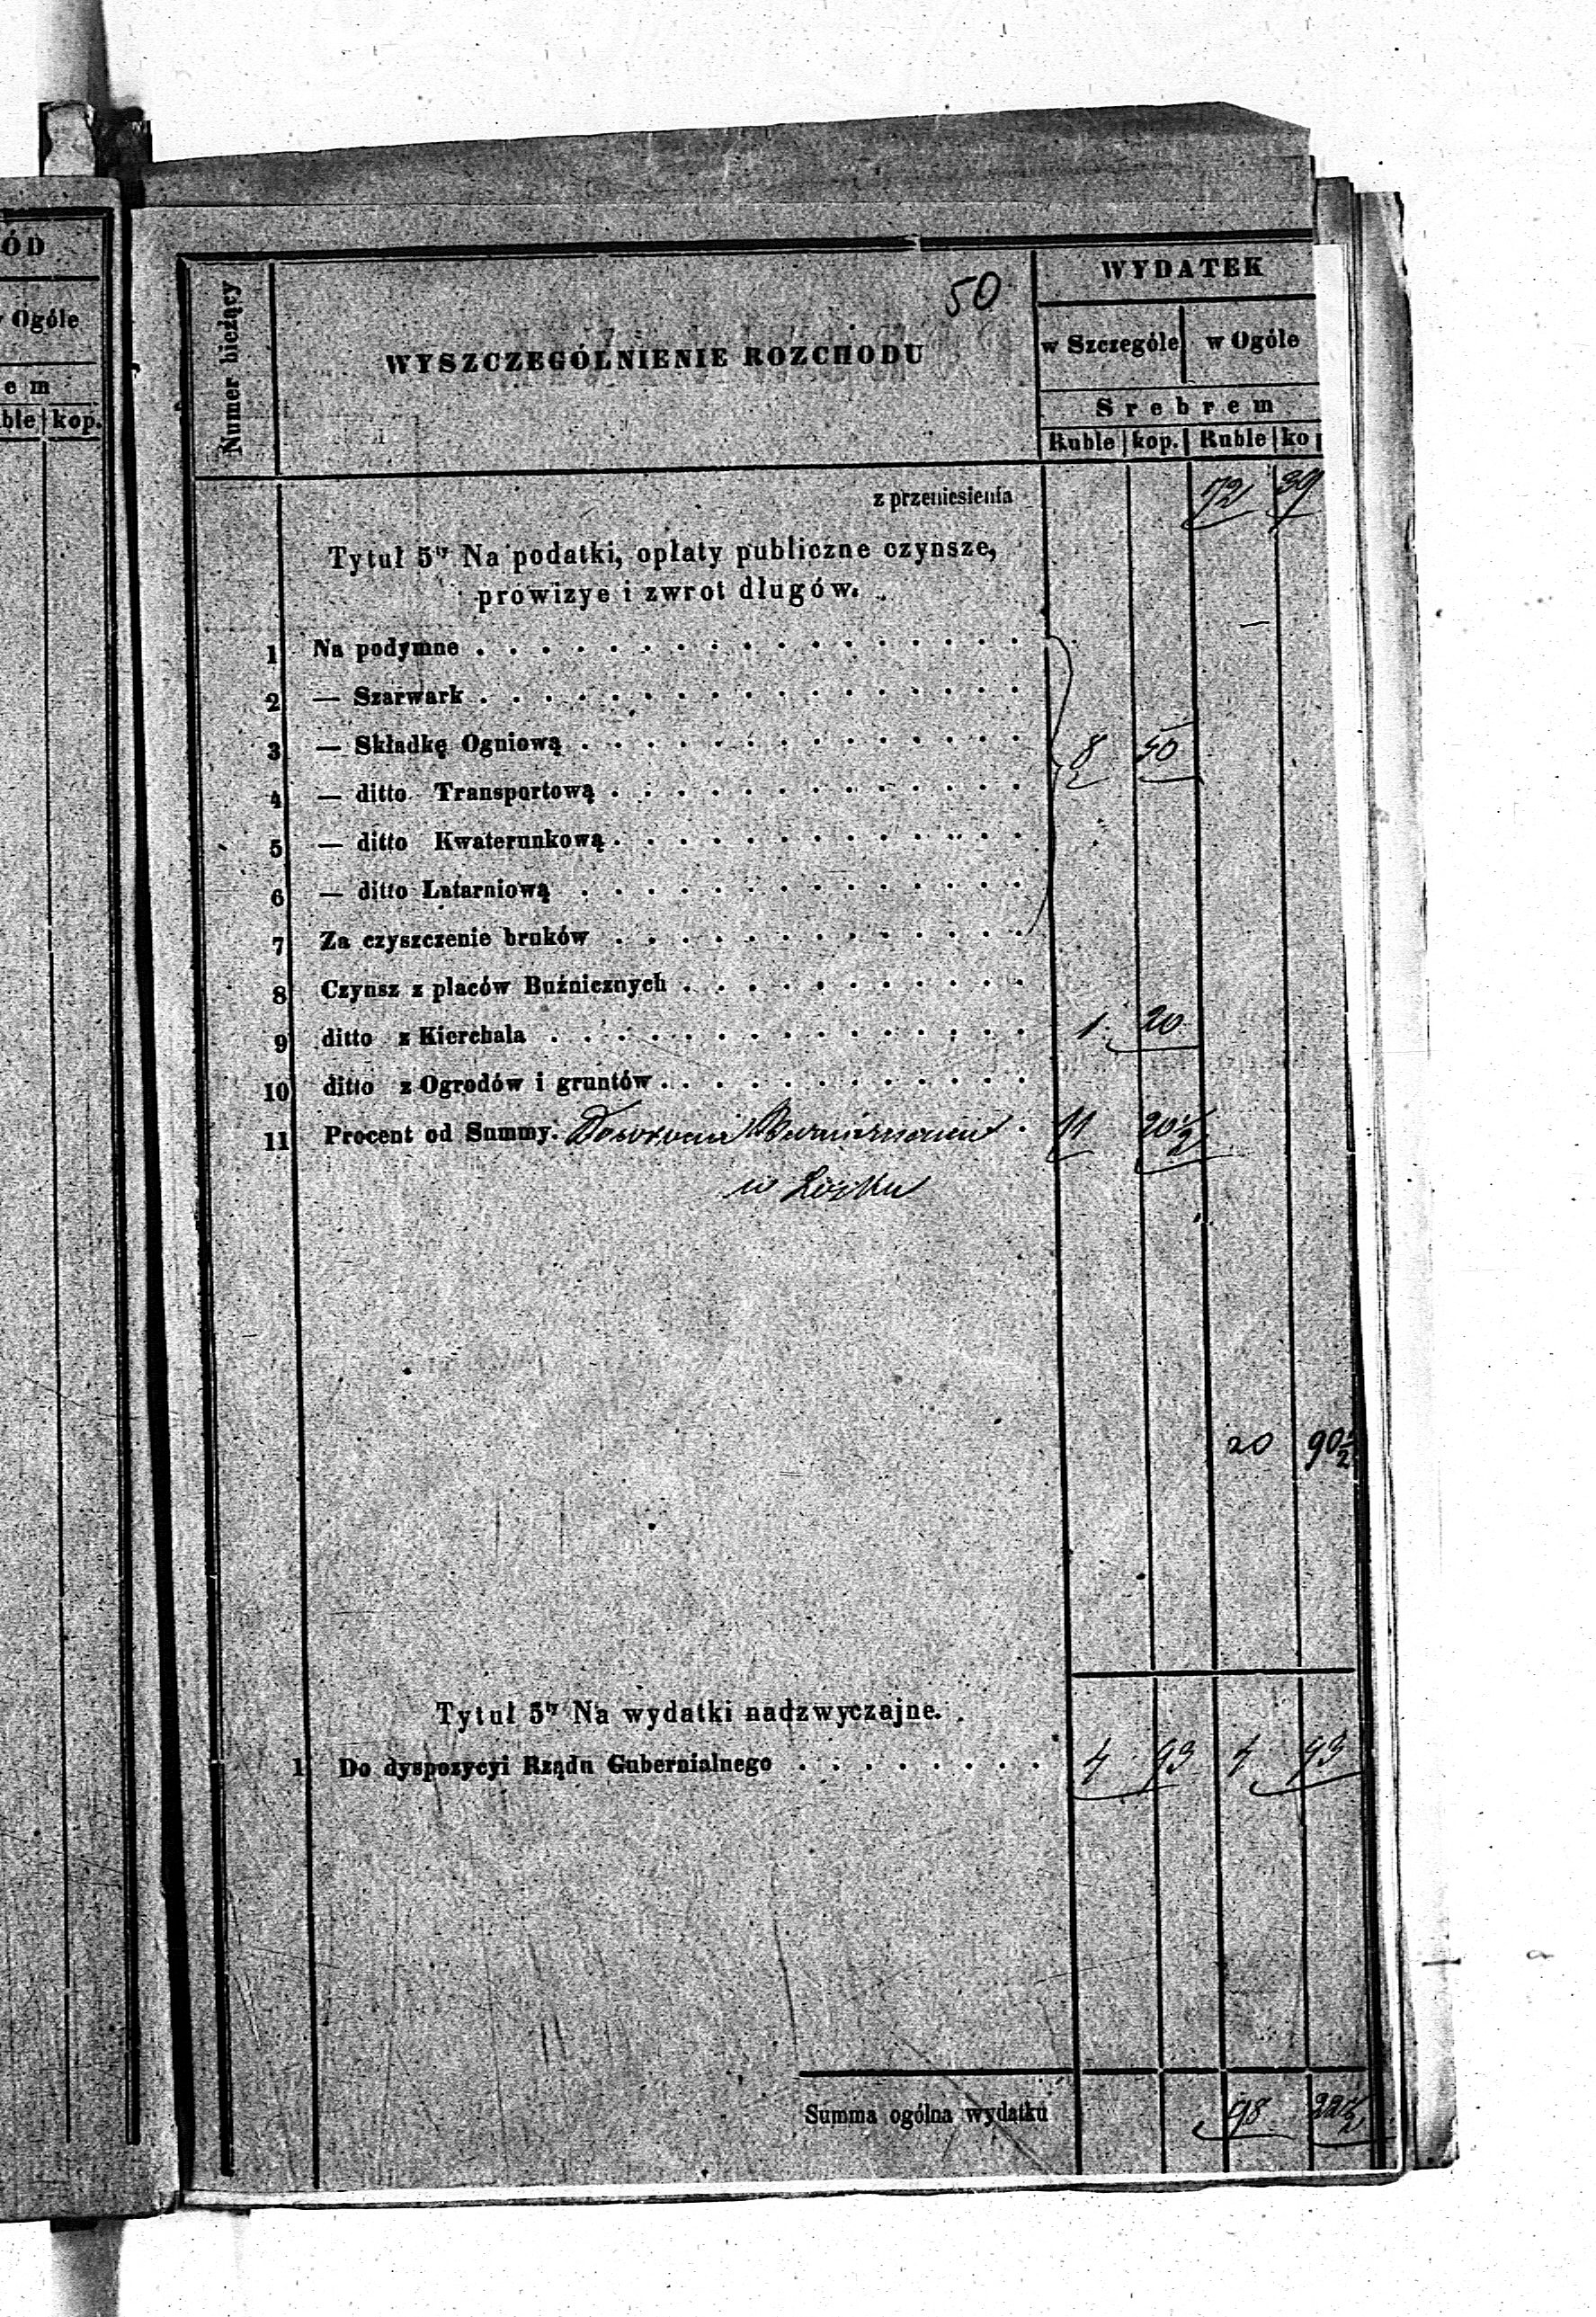 ÓD
Ogóle
em
ble kop.
50
Numer bieżący
WYSZCZEGÓLNIENIE ROZCHODU
WYDATEK
w Szczególe w Ogóle
Srebrem
Ruble kop. Ruble ko
z przeniesienia 72 39
Tytuł 5ty Na podatki, opłaty publiczne czynsze,
prowizye i zwrot długów.
1 Na podymne —
2 — Szarwark
3 — Składkę Ogniową 8 50
4 — ditto Transportową
5 — ditto Kwaterunkową
6 — ditto Latarniową
7 Za czyszczenie bruków
8 Czynsz z placów Buźnicznych
9 ditto z Kierchala 1 20
10 ditto z Ogrodów i gruntów
11 Procent od Summy. 11 20½
w
20 90½
Tytuł 5ty Na wydatki nadzwyczajne.
1 Do dyspozycyi Rządu Gubernialnego 4 93 4 93
Summa ogólna wydatku 98 22½